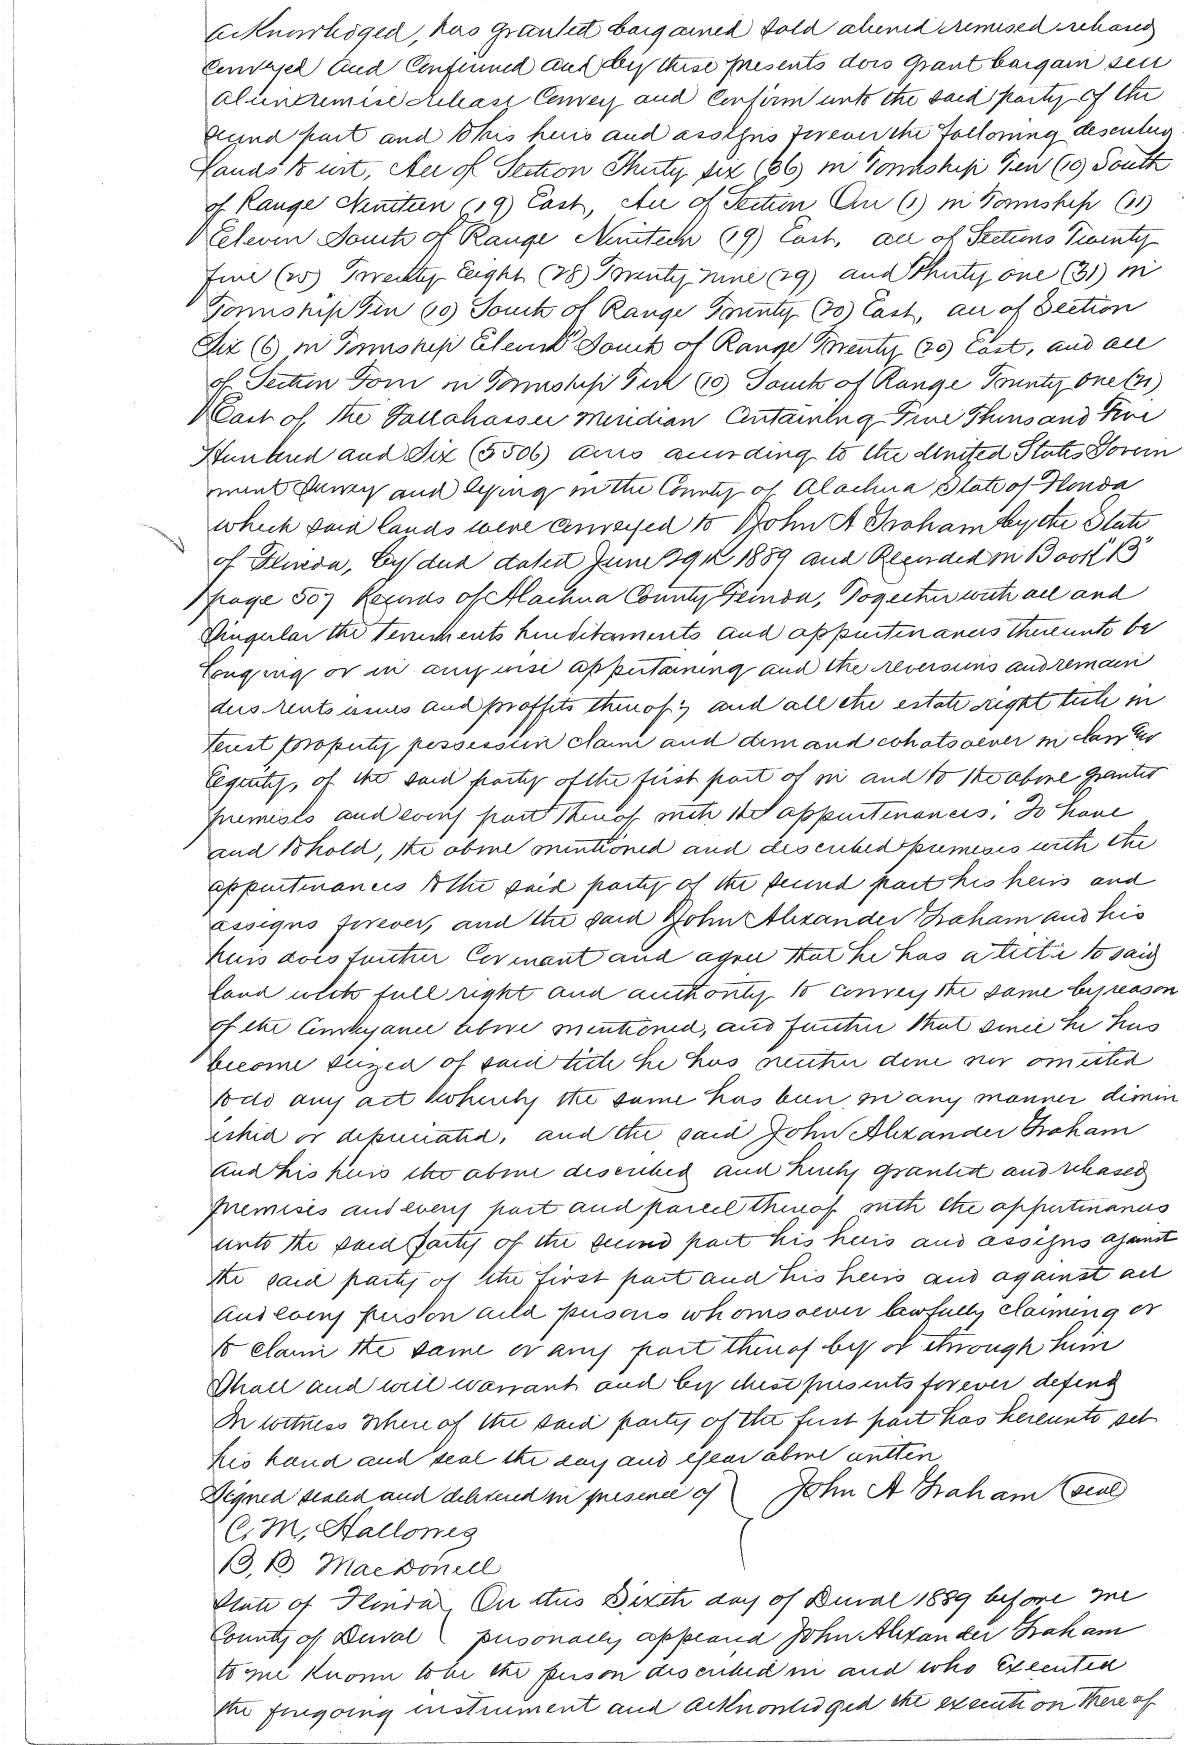 acknowledged, has granted bargained sold aliened remised released
Conveyed and Confirmed and by these presents does grant bargain sell
alien remise release Convey and Confirm unto the said party of the
second part and to his heirs and assigns forever the following described
lands to wit, All of Section Thirty six (36) in Township Ten (10) South
of Range Nineteen (19) East, All of Section One (1) in Township (11)
Eleven South of Range Nineteen (19) East, all of Sections Twenty
five (25) Twenty Eight (28) Twenty nine (29) and Thirty one (31) in
Township Ten (10) South of Range Twenty (20) East, all of Section
Six (6) in Township Eleven South of Range Twenty (20) East, and all
of Section Four in Township Ten (10) South of Range Twenty one (21)
East of the Tallahassee Meridian Containing Five Thousand Five
Hundred and Six (5506) acres according to the United States Govern
ment Survey and lying in the County of Alachua State of Florida
which said lands were conveyed to John A Graham by the State
of Florida, by deed dated June 29th 1889 and Recorded in Book "B"
page 507 Records of Alachua County Florida, Together with all and
Singular the tenements hereditaments and appurtenances thereunto be
longing or in any wise appertaining and the reversions and remain
ders rents issues and proffits thereof; and all the estate right title in
terest property possession claim and demand whatsoever in law or
Equity, of the said party of the first part of in and to the above granted
premises and every part thereof with the appurtenances: To have
and to hold, the above mentioned and described premises with the
appurtenances to the said party of the second part his heirs and
assigns forever, and the said John Alexander Graham and his
heirs does further Covenant and agree that he has a title to said
land with full right and authority to convey the same by reason
of the Conveyance above mentioned, and further that since he has
become seized of said title he has neither done nor omitted
to do any act whereby the same has been in any manner dimin
ished or depreciated, and the said John Alexander Graham
and his heirs the above described and hereby granted and released
premises and every part and parcel thereof with the appurtenances
unto the said party of the second part his heirs and assigns against
the said party of the first part and his heirs and against all
and every person and persons whomsoever lawfully claiming or
to claim the same or any part thereof by or through him
Shall and will warrant and by these presents forever defend
In witness whereof the said party of the first part has hereunto set
his hand and seal the day and year above written
Signed sealed and delivered in presence of John A Graham (seal)
C. M. Hallowes
B. B MacDonell
State of Florida On this Sixth day of Duval 1889 before me
County of Duval personally appeared John Alexander Graham
to me known to be the person described in and who Executed
the foregoing instrument and acknowledged the execution thereof